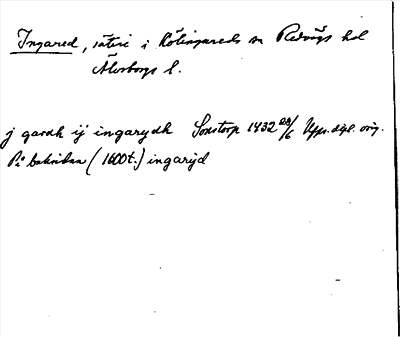 Ingared, säteri i Kölingareds sn Redvägs hd
Älvsborgs l.
j gardh ij ingarydh Sonstorp 1432 28/6 Upps. dipl. orig.
På baksidan (1600t.) ingarijd